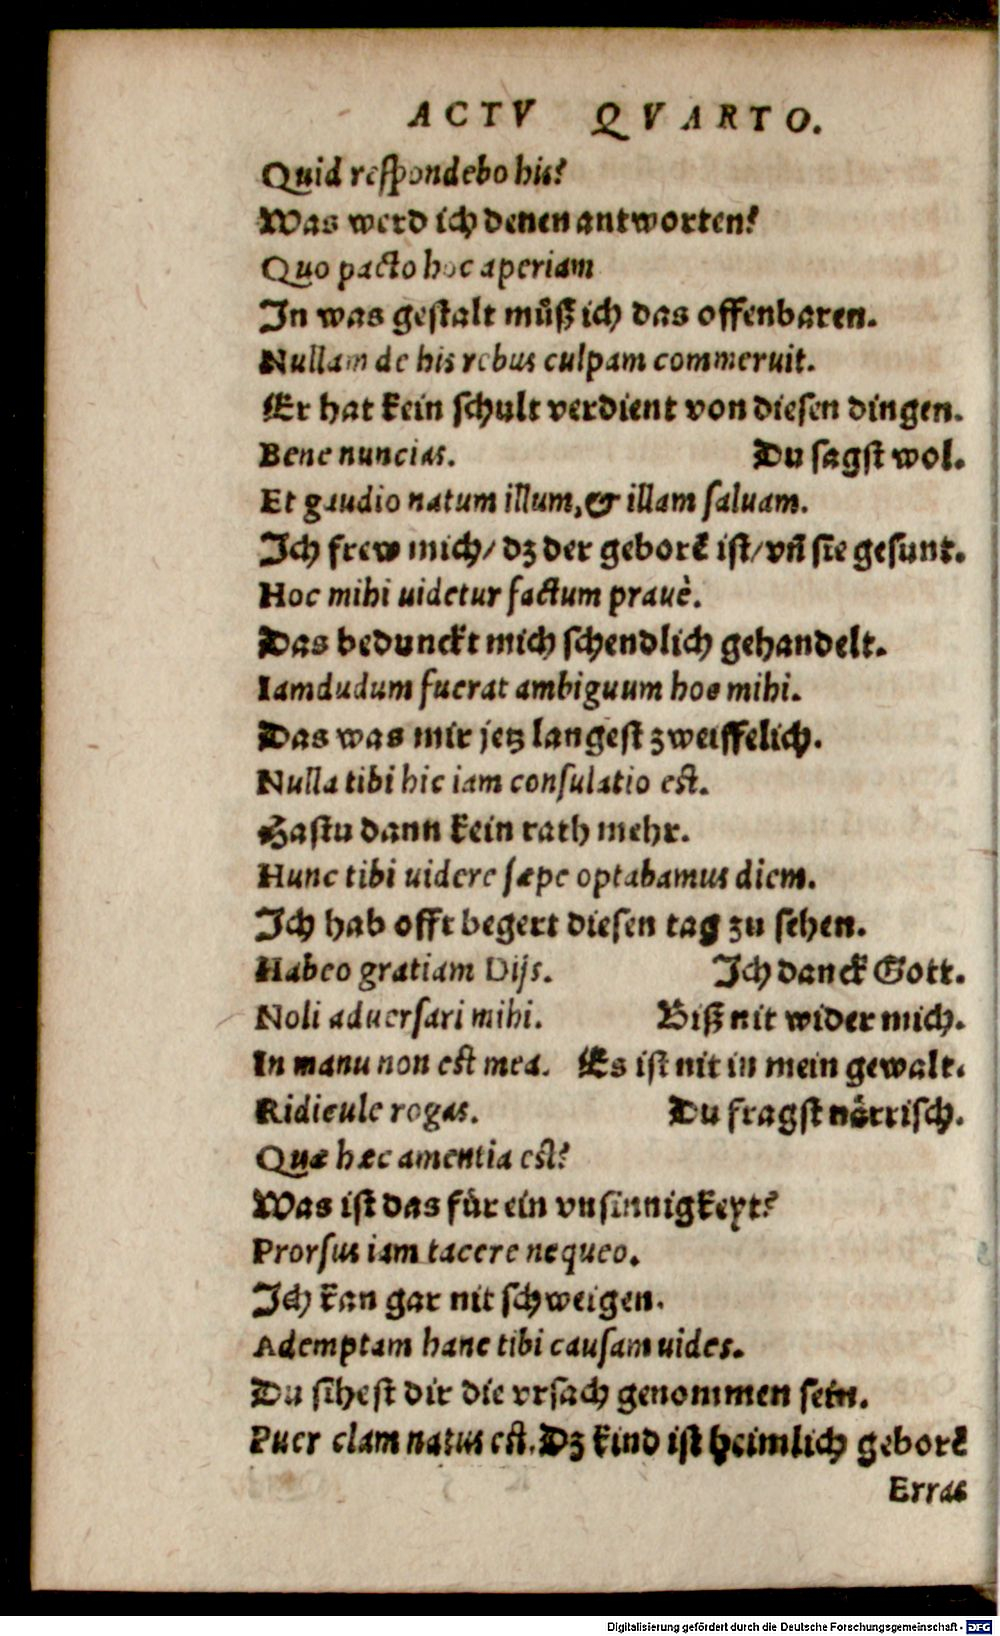 ACTV QVARTO.
Quid respondebo his?
Was werd ich denen antworten?
Quo pacto hoc aperiam
In was gestalt můß ich das offenbaren.
Nullam de his rebus culpam commeruit.
Er hat kein schult verdient von diesen dingen.
Bene nuncias. Du sagst wol.
Et gaudio natum illum, & illam saluam.
Ich frew mich/ dz der geborẽ ist/ vñ sie gesunt.
Hoc mihi uidetur factum prauè.
Das bedunckt mich schendlich gehandelt.
Iamdudum fuerat ambiguum hoc mihi.
Das was mir jetz langest zweiffelich.
Nulla tibi hic iam consulatio est.
Hastu dann kein rath mehr.
Hunc tibi uidere sæpe optabamus diem.
Ich hab offt begert diesen tag zu sehen.
Habeo gratiam Dijs. Ich danck Gott.
Noli aduersari mihi. Biß nit wider mich.
In manu non est mea. Es ist nit in mein gewalt.
Ridicule rogas. Du fragst nårrisch.
Quæ hæc amentia est?
Was ist das für ein vnsinnigkeyt?
Prorsus iam tacere nequeo.
Ich kan gar nit schweigen.
Ademptam hanc tibi causam uides.
Du sihest dir die vrsach genommen sein.
Puer clam natus est. Dz kind ist heimlich geborẽ
Erras
Digitalisierung gefördert durch die Deutsche Forschungsgemeinschaft - DFG